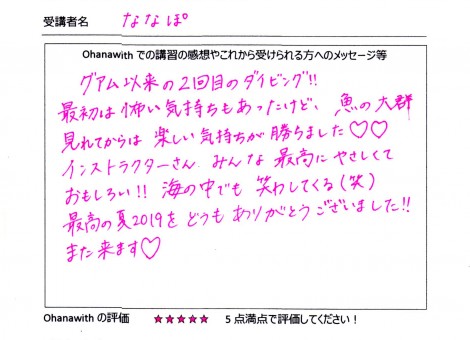 受講者名 ななぽ
Ohanawith での講習の感想やこれから受けられる方へのメッセージ等
グアム以来の2回目のダイビング!!
最初は怖い気持ちもあったけど、魚の大群
見れてからは 楽しい気持ちが勝ちました♡♡
インストラクターさん みんな 最高に やさしくて
おもしろい!! 海の中でも 笑わしてくる(笑)
最高の夏2019を どうも ありがとうございました!!
また来ます♡
Ohanawith の評価 ★★★★★ 5 点満点で評価してください！